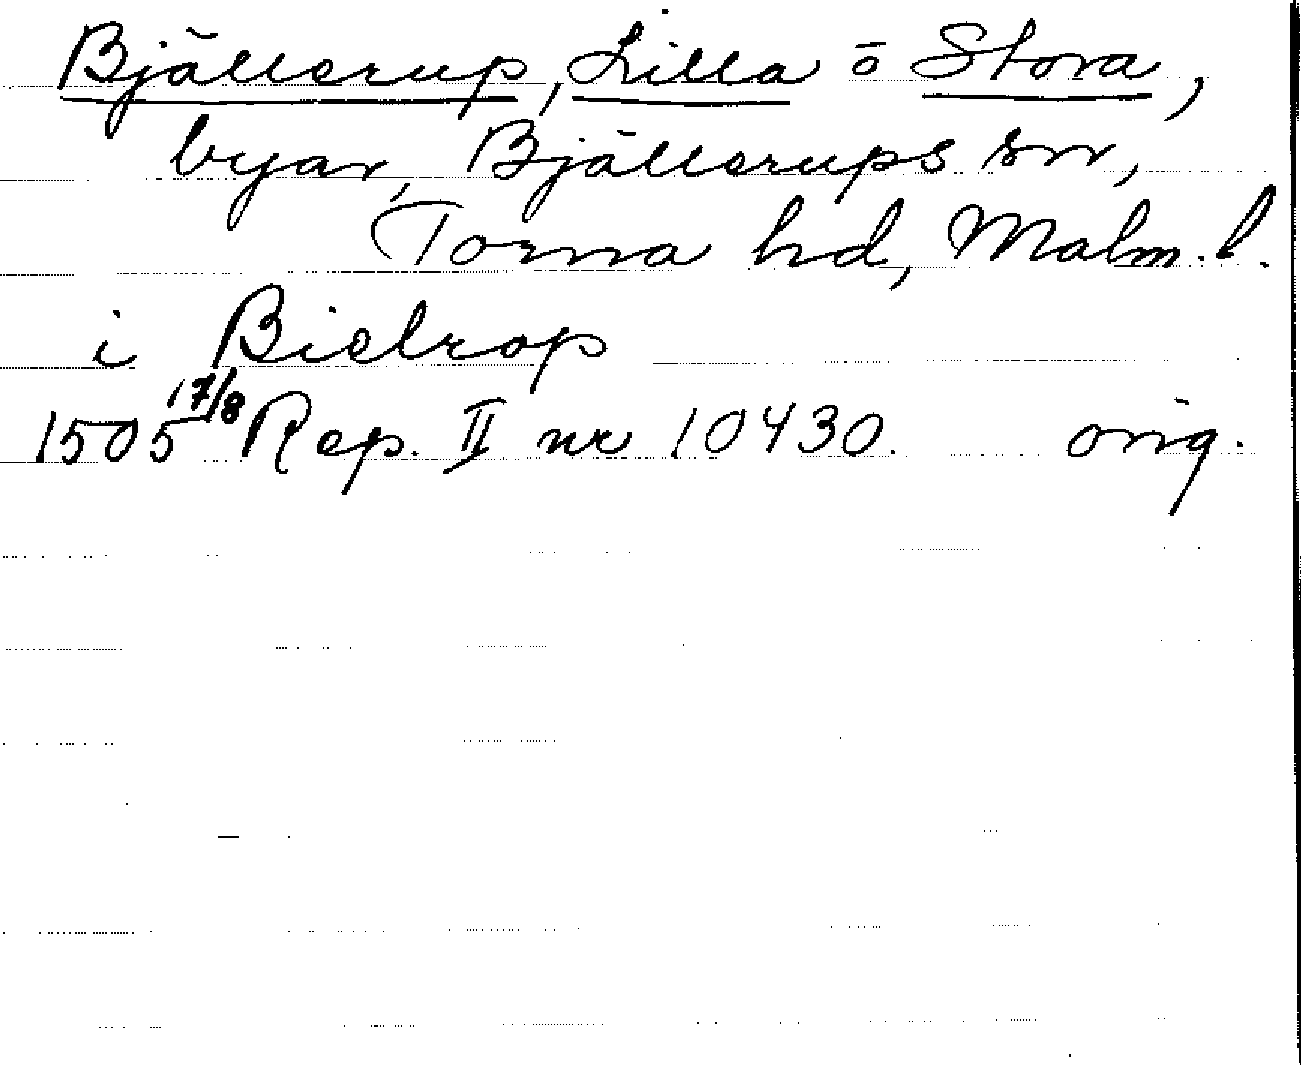 Bjällerup, Lilla o Stora,
byar, Bjällerups sn,
Torna hd, Malm. l.
i Bielrop
1505 17/8 Rep. II nr 10430. orig.